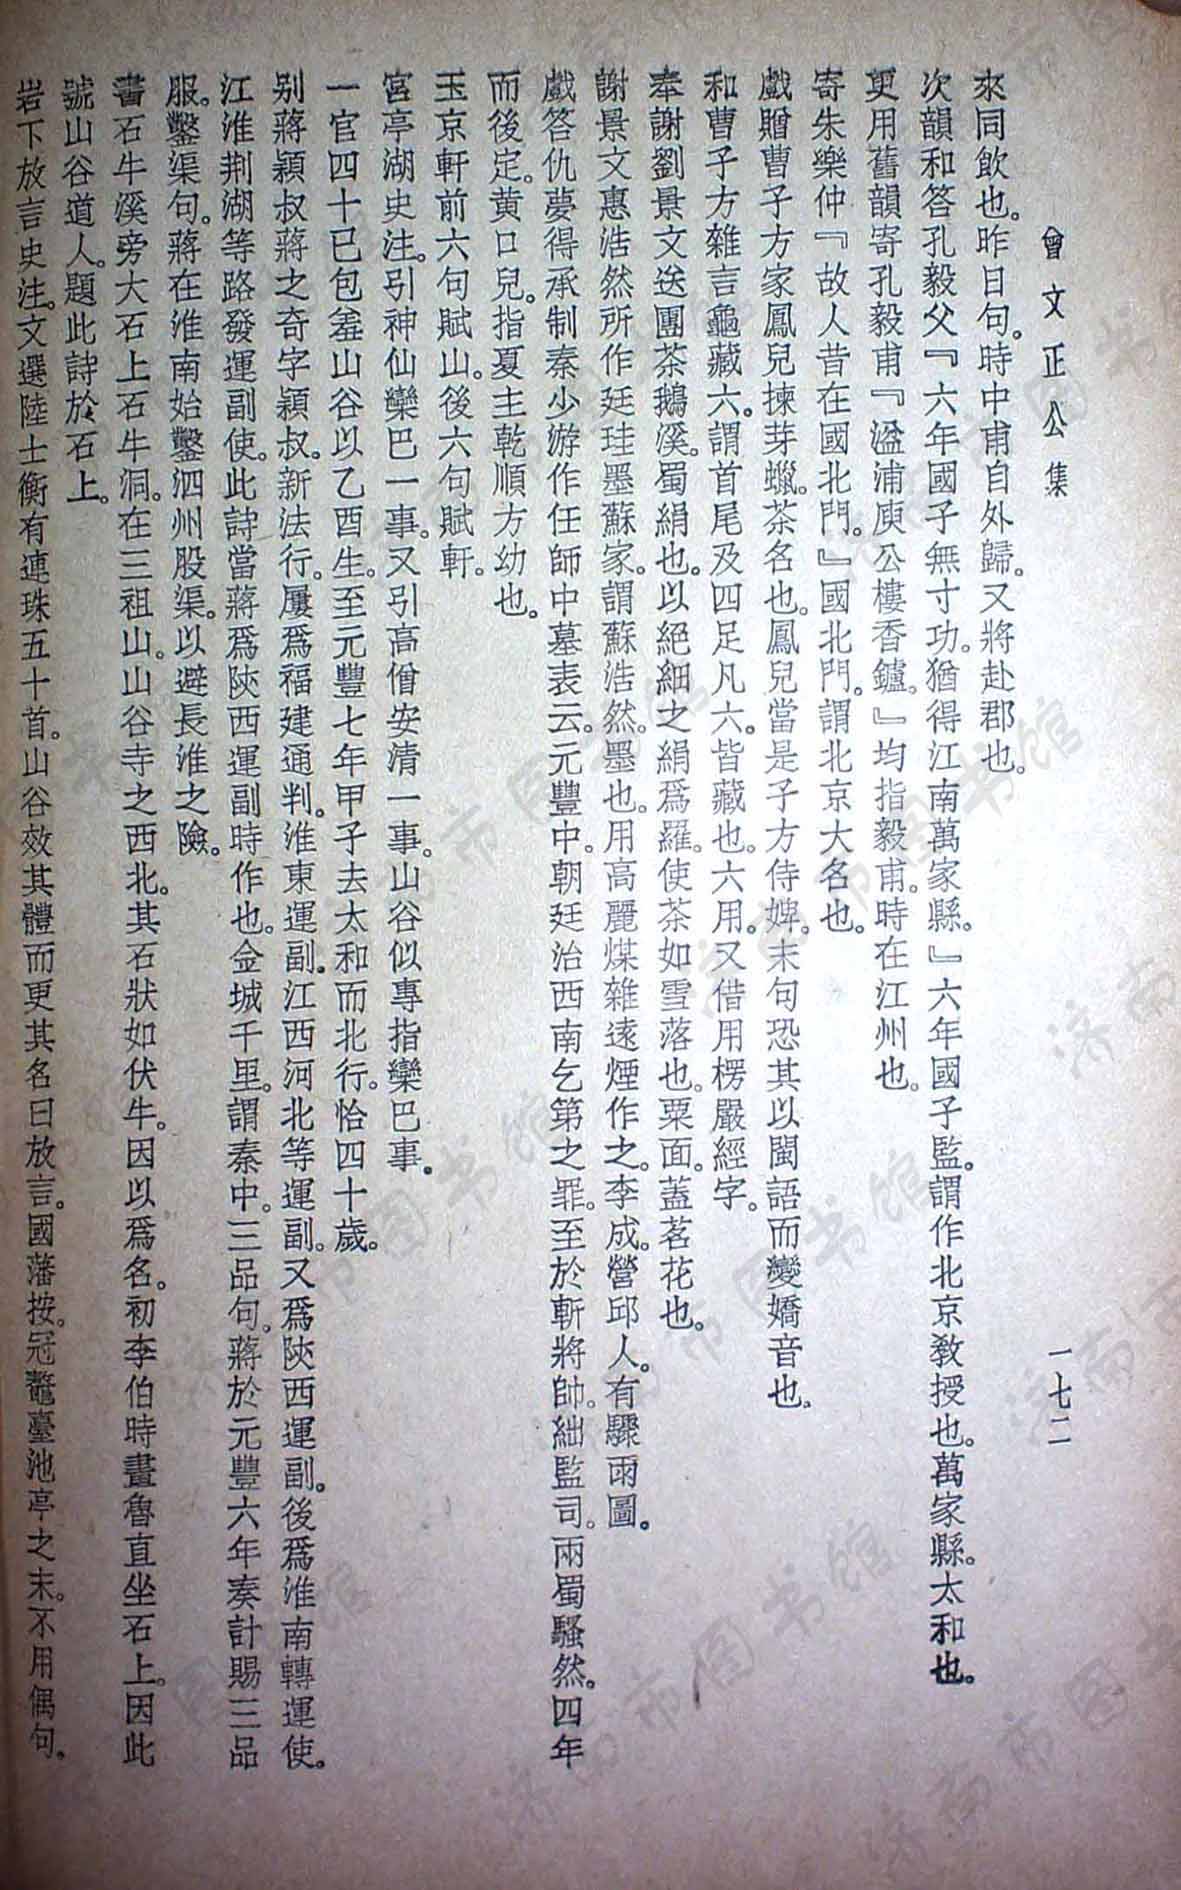 曾文正公集
一七二
來同飲也。昨日句。時中甫自外歸。又將赴郡也。
次韻和答孔毅父『六年國子無寸功。猶得江南萬家縣。』六年國子監。謂作北京教授也。萬家縣。太和也。
更用舊韻寄孔毅甫『湓浦庾公樓香鑪。』均指毅甫。時在江州也。
寄朱樂仲『故人昔在國北門。』國北門。謂北京大名也。
戲贈曹子方家鳳兒揀芽蠟。茶名也。鳳兒當是子方侍婢。末句恐其以閩語而變嬌音也。
和曹子方雜言龜藏六。謂首尾及四足凡六。皆藏也。六用。又借用楞嚴經字。
奉謝劉景文送團茶鵝溪。蜀絹也。以絕細之絹爲羅。使茶如雪落也。粟面。蓋茗花也。
謝景文惠浩然所作廷珪墨蘇家。謂蘇浩然。墨也。用高麗煤雜遠煙作之。李成。營邱人。有驟雨圖。
戲答仇夢得承制秦少游作任師中墓表云。元豐中。朝廷治西南乞第之罪。至於斬將帥。絀監司。兩蜀騷然。四年
而後定。黃口兒。指夏主乾順方幼也。
玉京軒前六句賦山。後六句賦軒。
宮亭湖史注。引神仙欒巴一事。又引高僧安清一事。山谷似專指欒巴事。
一官四十已包羞山谷以乙酉生。至元豐七年甲子去太和而北行。恰四十歲。
別蔣穎叔蔣之奇字穎叔。新法行。屢爲福建通判。淮東運副。江西河北等運副。又爲陝西運副。後爲淮南轉運使。
江淮荆湖等路發運副使。此詩當蔣爲陝西運副時作也。金城千里。謂秦中。三品句。蔣於元豐六年奏計賜三品
服。鑿渠句。蔣在淮南始鑿泗州股渠。以避長淮之險。
書石牛溪旁大石上石牛洞。在三祖山。山谷寺之西北。其石狀如伏牛。因以爲名。初李伯時畫魯直坐石上。因此
號山谷道人。題此詩於石上。
岩下放言史注。文選陸士衡有連珠五十首。山谷效其體而更其名曰放言。國藩按。冠鼇臺池亭之末。不用偶句。